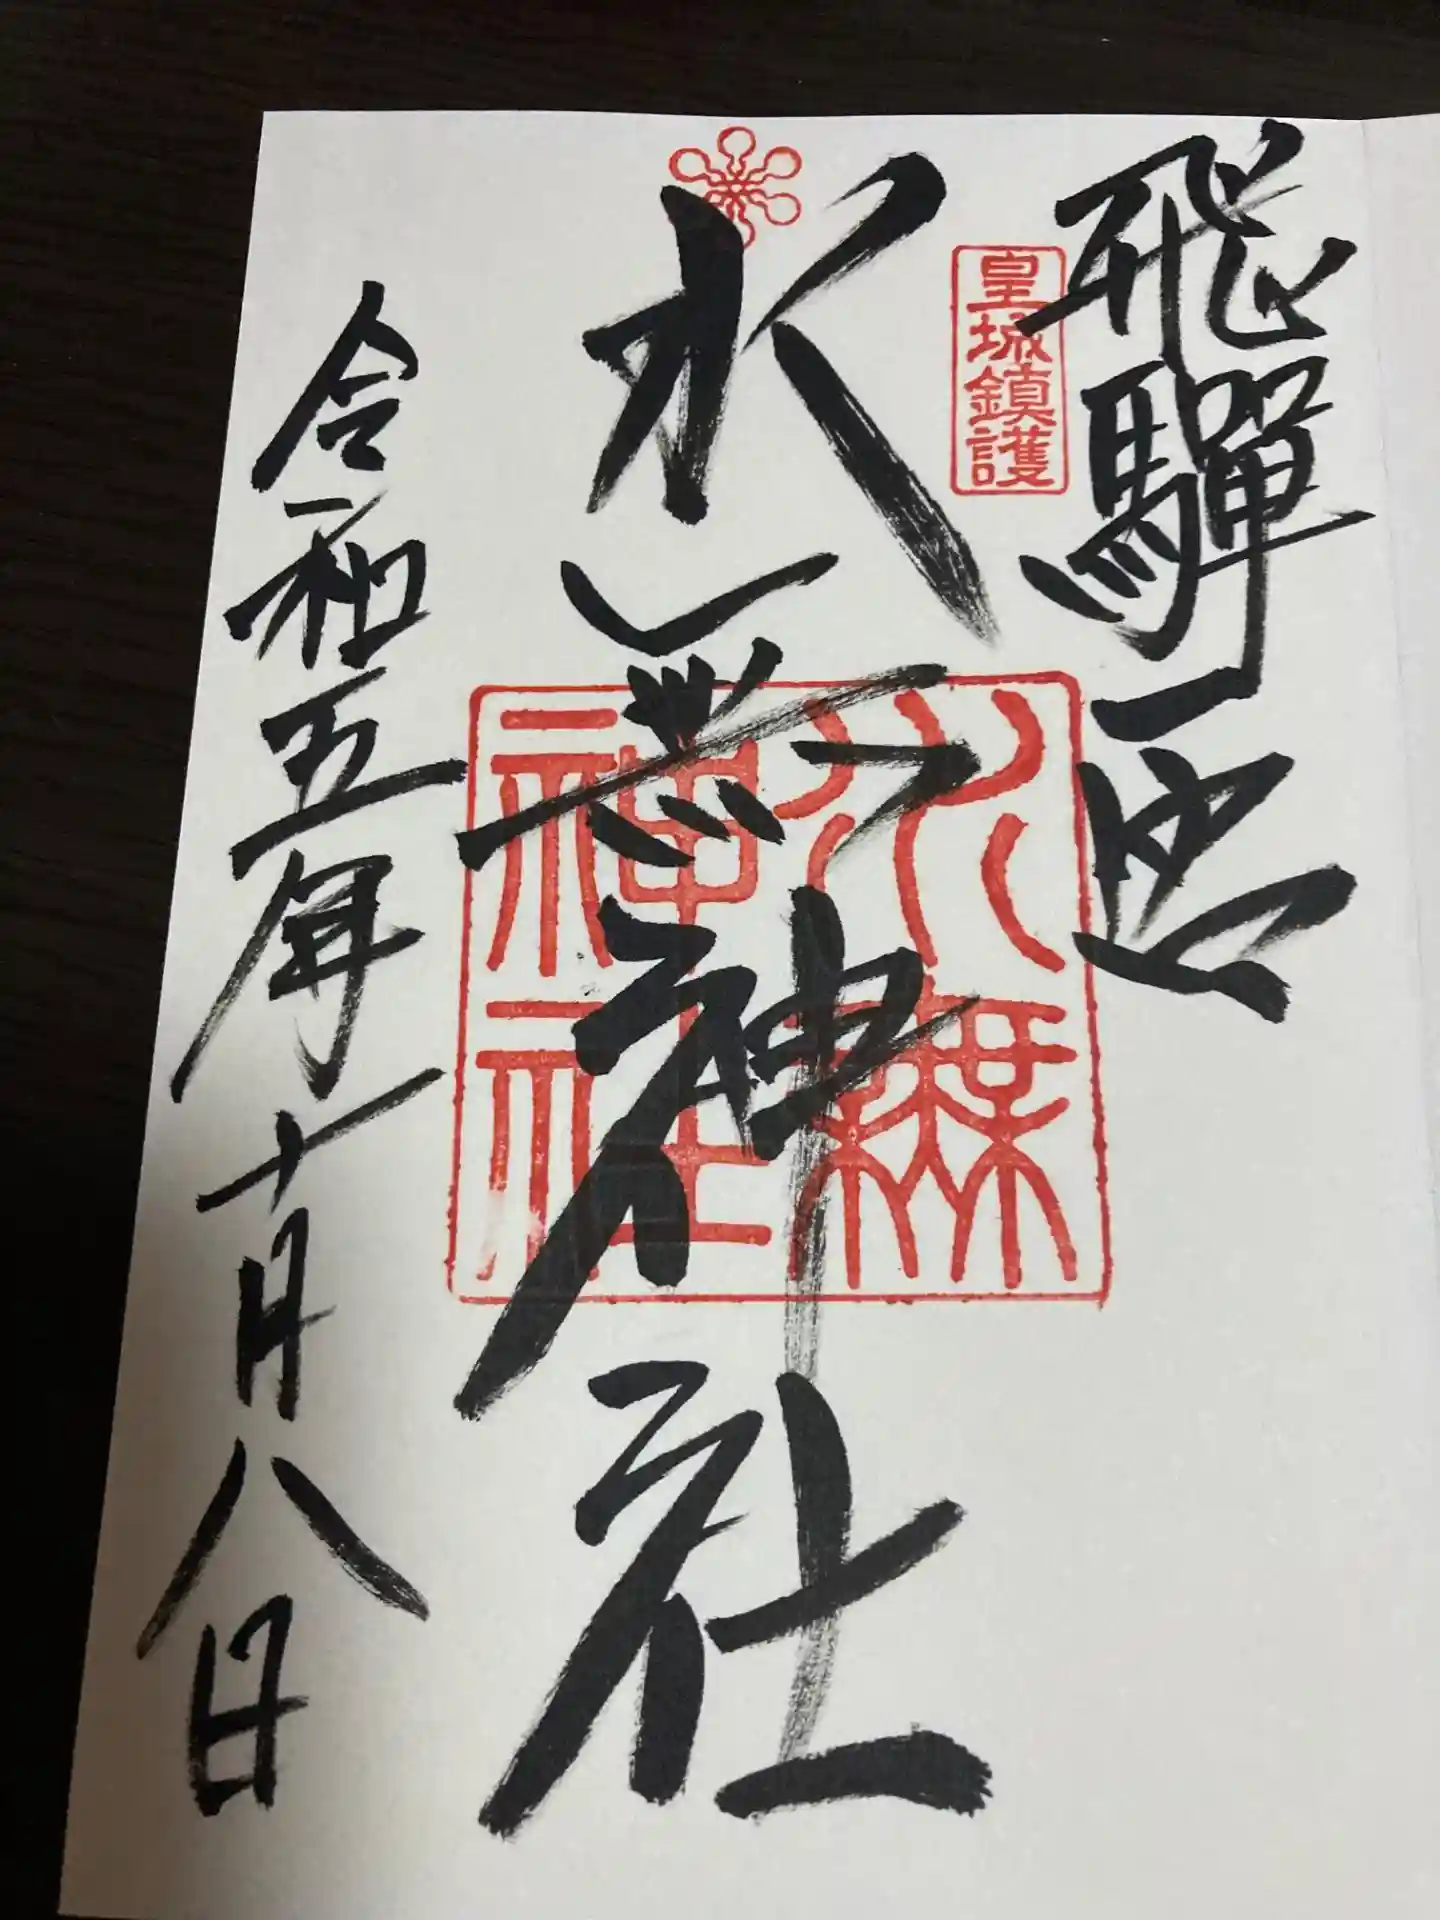 飛驒一宮
皇城鎮護
水無神社
水無神社
令和五年十月八日